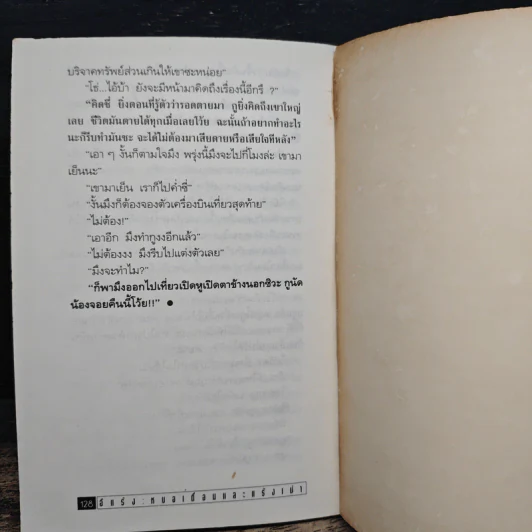 บริจาคทรัพย์ส่วนเกินให้เขาซะหน่อย"
"โช่...ไอ้บ้า ยังจะมีหน้ามาคิดถึงเรื่องนี้อีกรึ ?"
"คิดซี่ ยิ่งตอนที่รู้ตัวว่ารอดตายมา กูยิ่งคิดถึงเขาใหญ่
เลย ชีวิตมันตายได้ทุกเมื่อเลยโว้ย ฉะนั้นถ้าอยากทำอะไร
นะก็รีบทำมันซะ จะได้ไม่ต้องมาเสียดายหรือเสียใจทีหลัง"
"เอา ๆ งั้นก็ตามใจมึง พรุ่งนี้มึงจะไปกี่โมงล่ะ เขามา
เย็นนะ"
"เขามาเย็น เราก็ไปค่ำซี่"
"งั้นมึงก็ต้องจองตั๋วเครื่องบินเที่ยวสุดท้าย"
"ไม่ต้อง!"
"เอาอีก มึงทำกูงงอีกแล้ว"
"ไม่ต้องงง มึงรีบไปแต่งตัวเลย"
"มึงจะทำไม?"
"ก็พามึงออกไปเที่ยวเปิดหูเปิดตาข้างนอกซิวะ กูนัด
น้องจอยคืนนี้โว้ย!!" ●
128